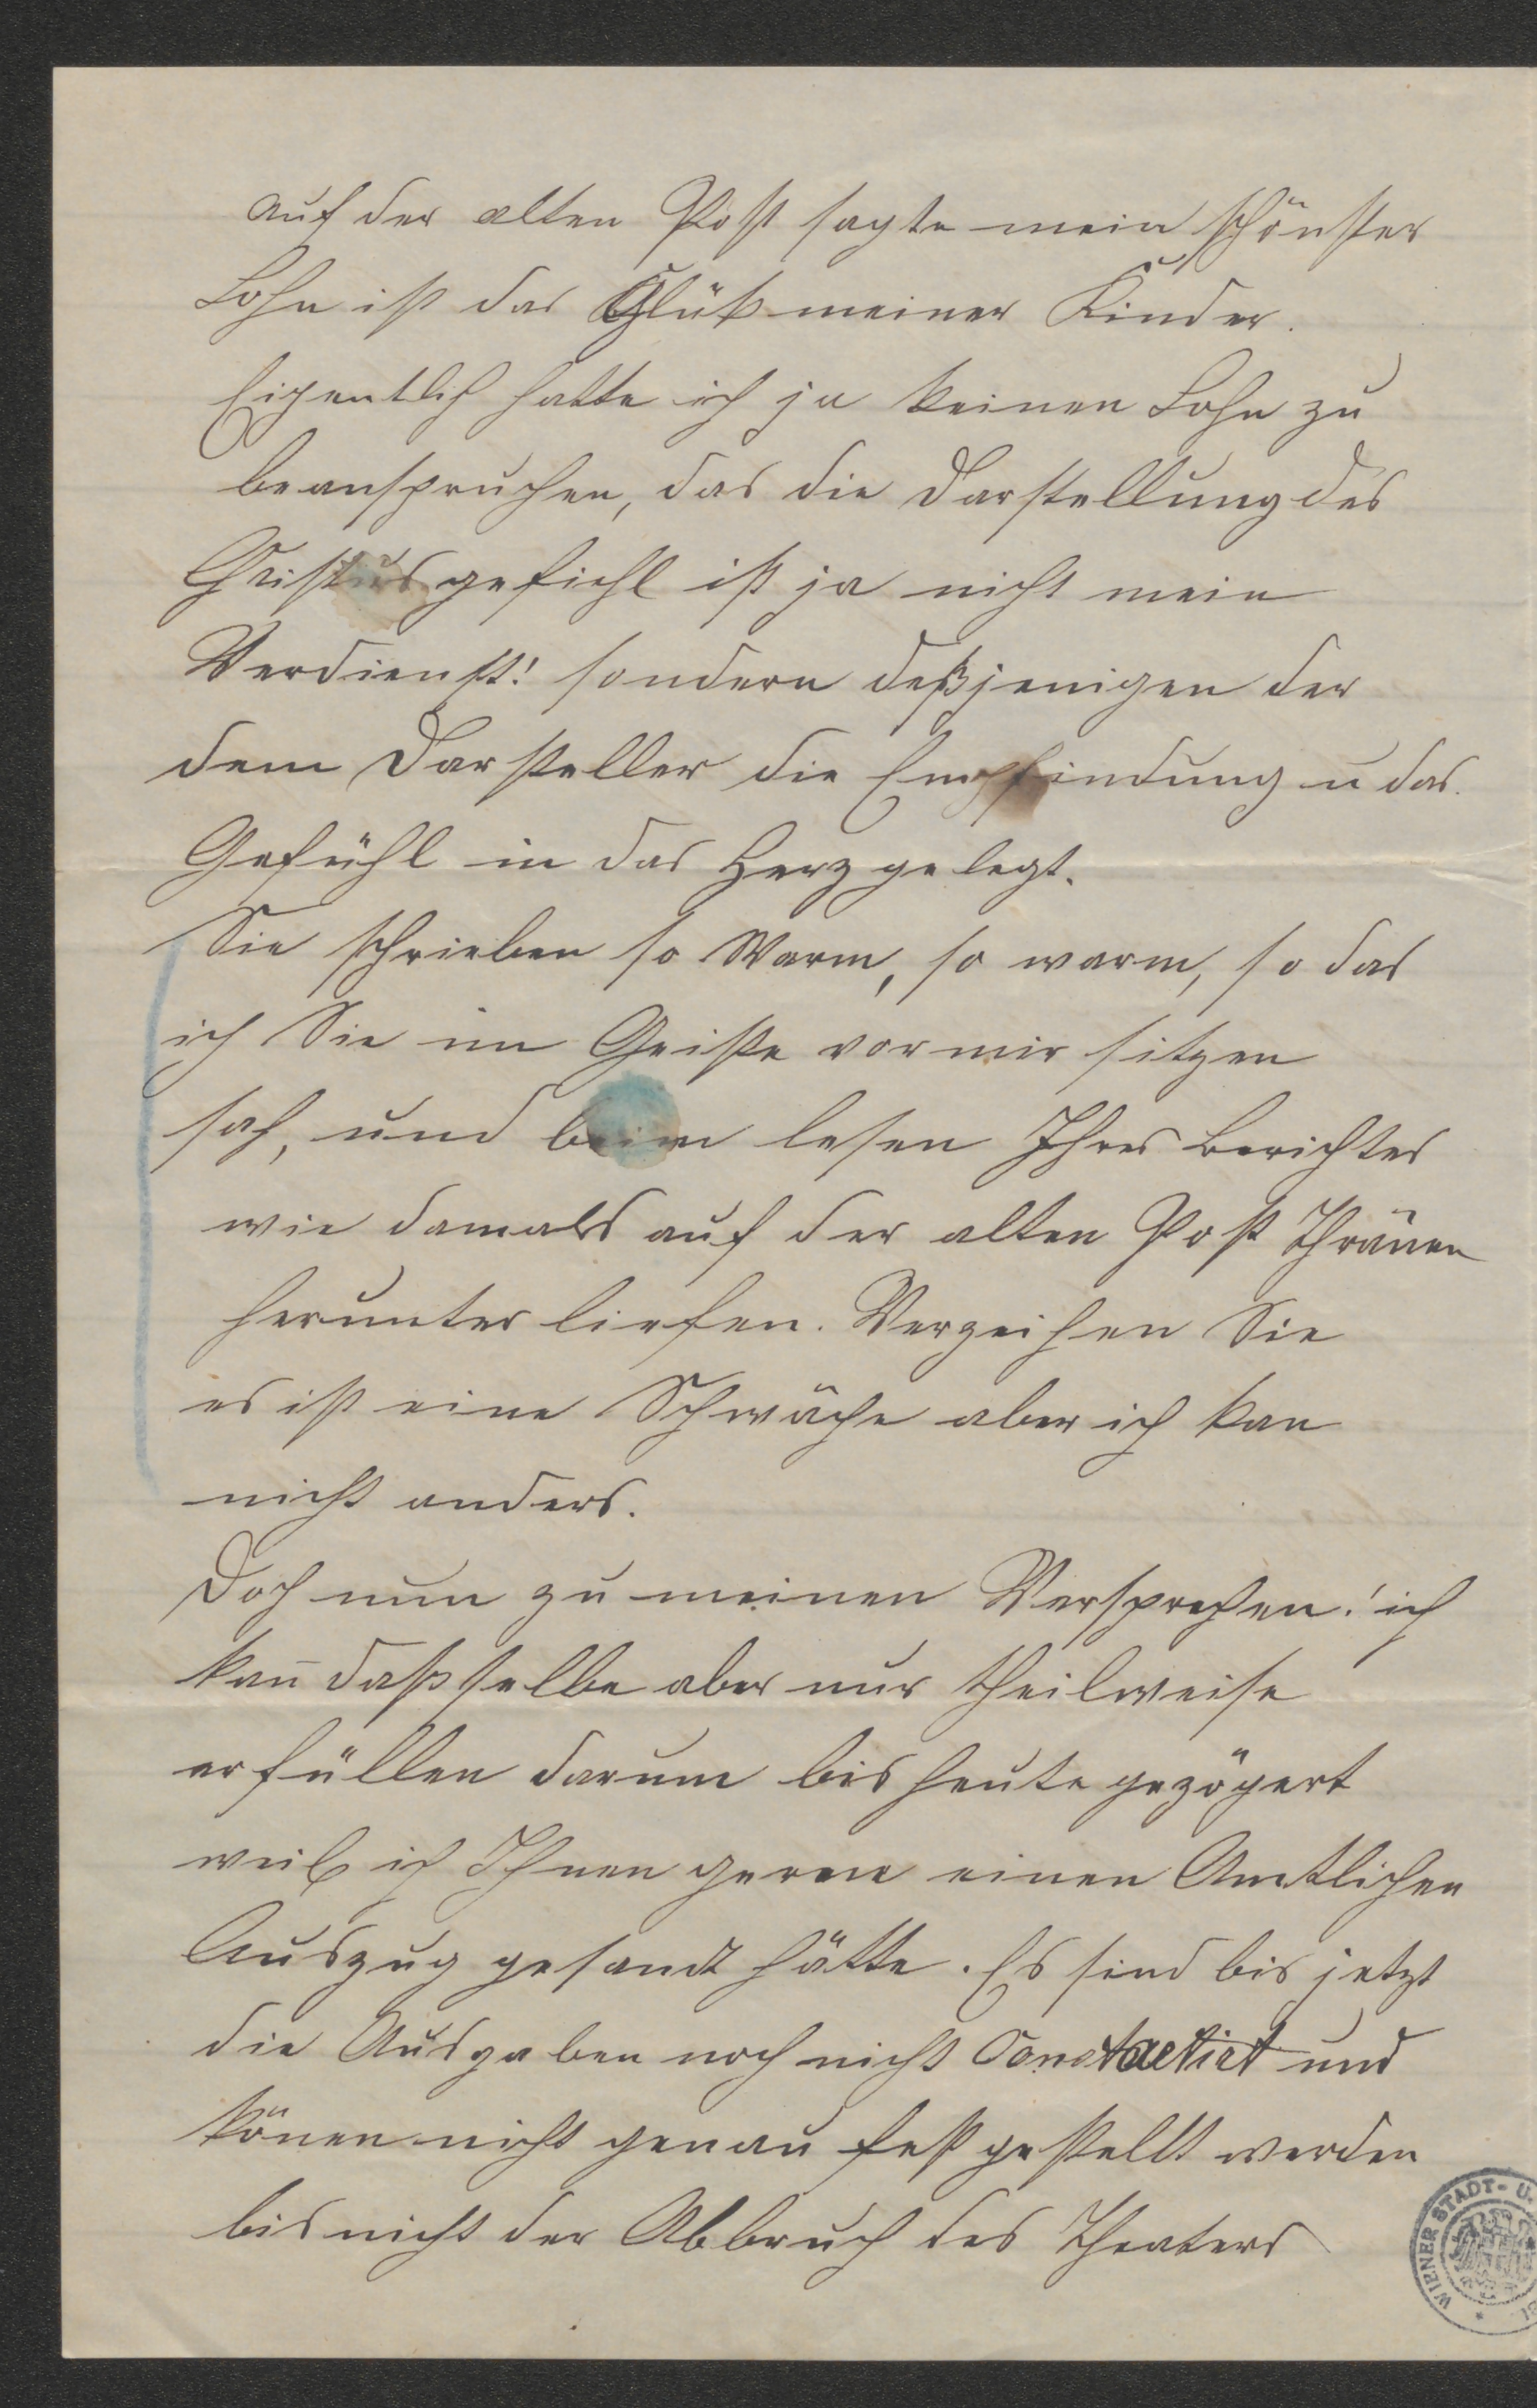 auf der alten Post sagte mein schönster
Lohn ist das Glük meiner Kinder.
Eigentlich hatte ich ja keinen Lohn zu
beanspruchen, das die Darstellung des
Christus gefiehl ist ja nicht mein
Verdienst! sondern deßjenigen der
dem Darsteller die Empfindung u das
Gefühl in das Herz gelegt.
Sie schrieben so Warm, so warm, so das
ich Sie im Geiste vor mir sitzen
sah, und beim lesen Ihres Berichtes
wie damals auf der alten Post Thränen
herunter liefen. Verzeihen Sie
es ist eine Schwäche aber ich kan
nicht anders.
Doch nun zu meinen Versprechen! ich
kan̄ daßselbe aber nur theilweise
erfüllen darum bis heute gezögert
weil ich Ihnen gerne einen Amtlichen
Auszug gesandt hätte. Es sind bis jetzt
die Ausgaben noch nicht Constatirt und
könen nicht genau festgestellt werden
bis nicht der Abbruch des Theaters
WIENER STADT- U.